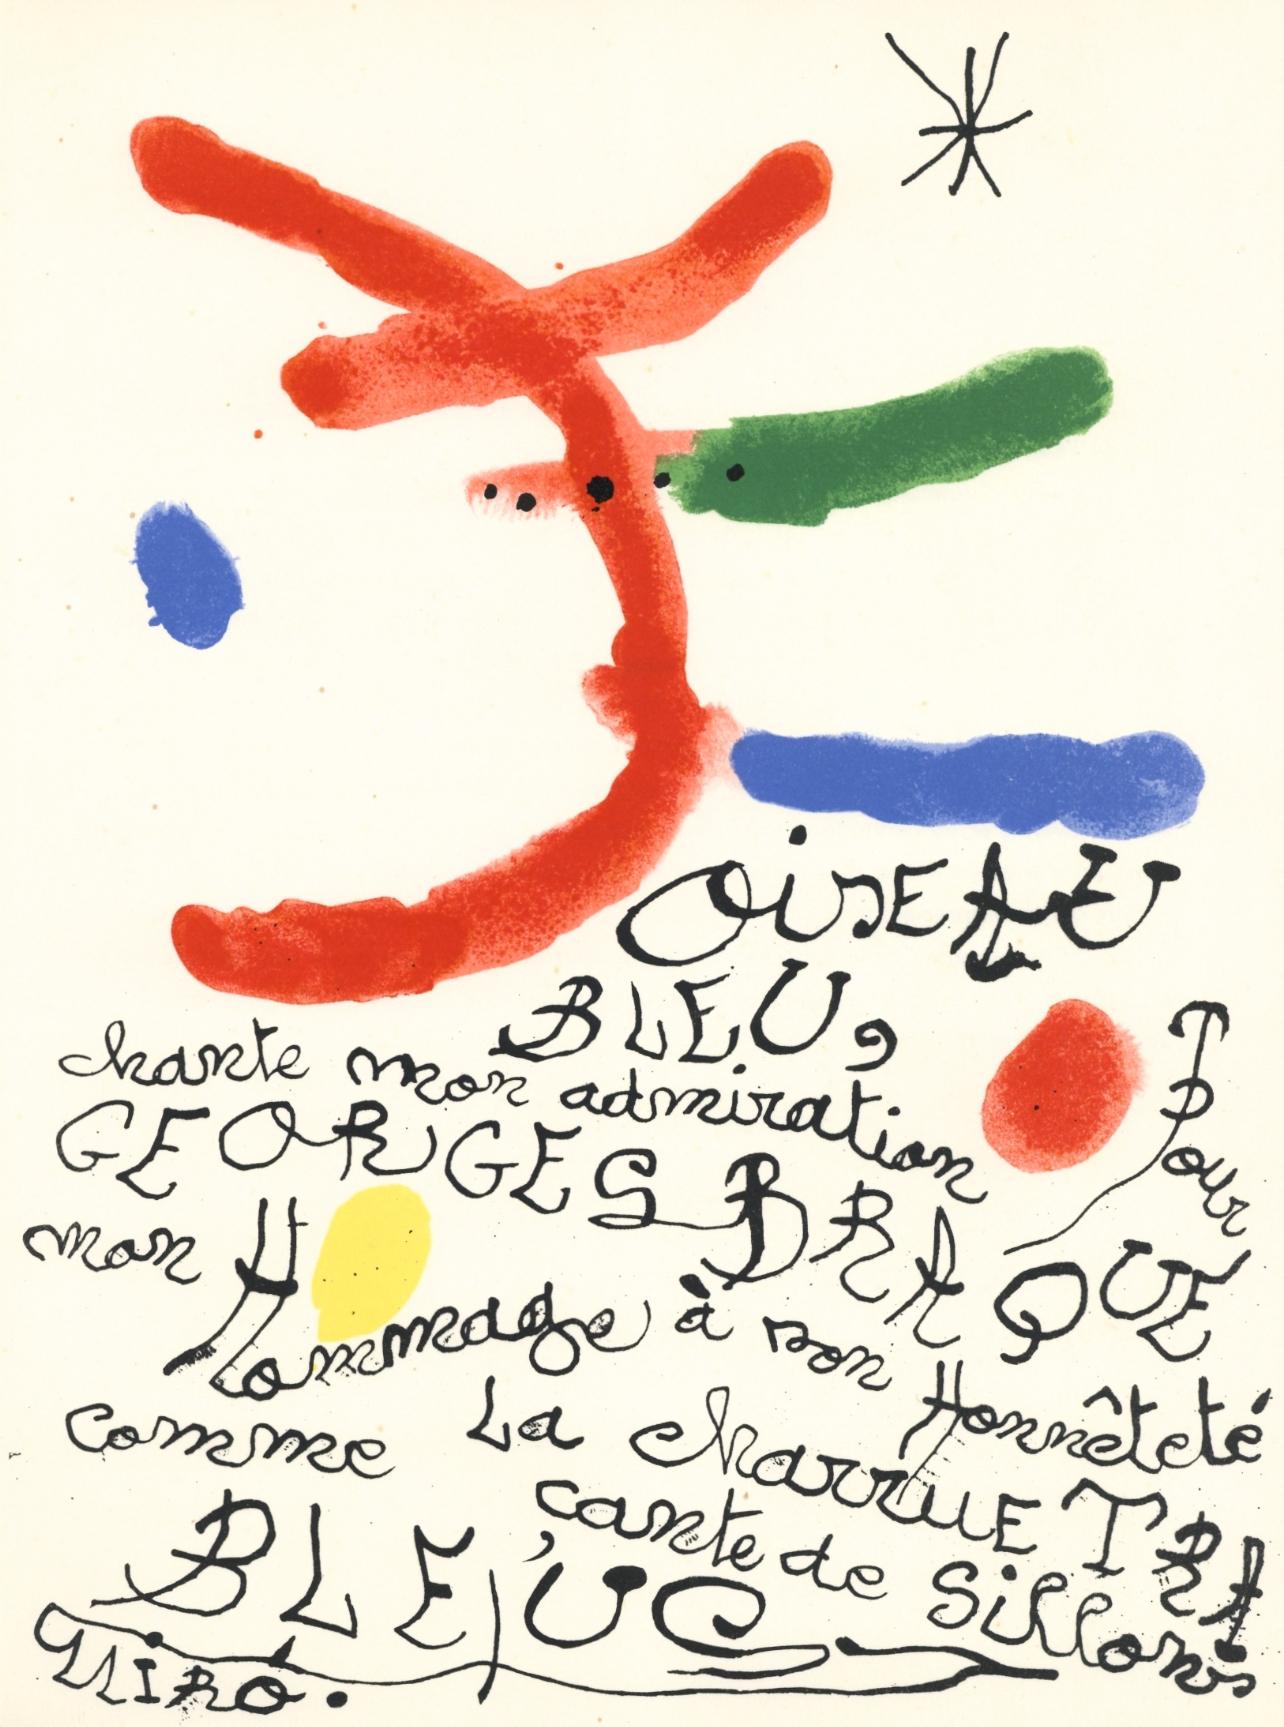 OiSEAU
BLEU,
chante mon admiration Pour
GEORGES BRAQUE
mon Hommage à son Honnêteté
comme La charrUE TRA
çante de Sillons
BLEUS
Miró.